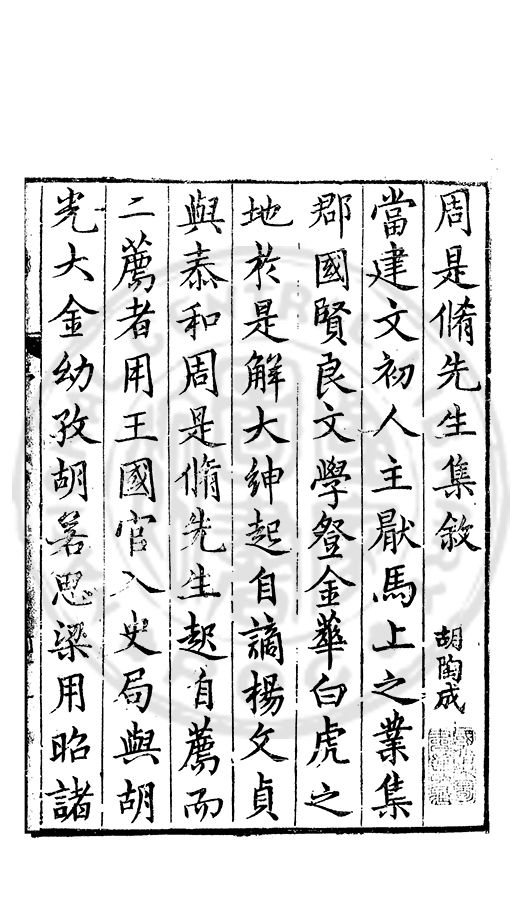 周是脩先生集敘 胡陶成
當建文初人主厭馬上之業集
郡國賢良文學登金華白虎之
地於是解大紳起自謫楊文貞
與泰和周是脩先生起自薦而
二薦者用王國官入史局與胡
光大金幼孜胡若思梁用昭諸